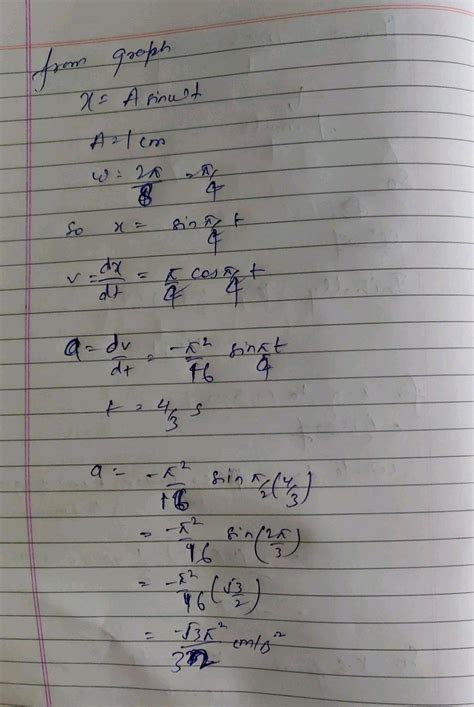 from graph
x = A sin ωt
A = 1 cm
ω = 2π/8 = π/4
So x = sin π/4 t
v = dx/dt = π/4 cos π/4 t
a = dv/dt = -π²/16 sin πt/4
t = 4/3 s
a = -π²/16 sin π/2 (4/3)
= -π²/16 sin (2π/3)
= -π²/16 (√3/2)
= -√3π²/32 cm/s²